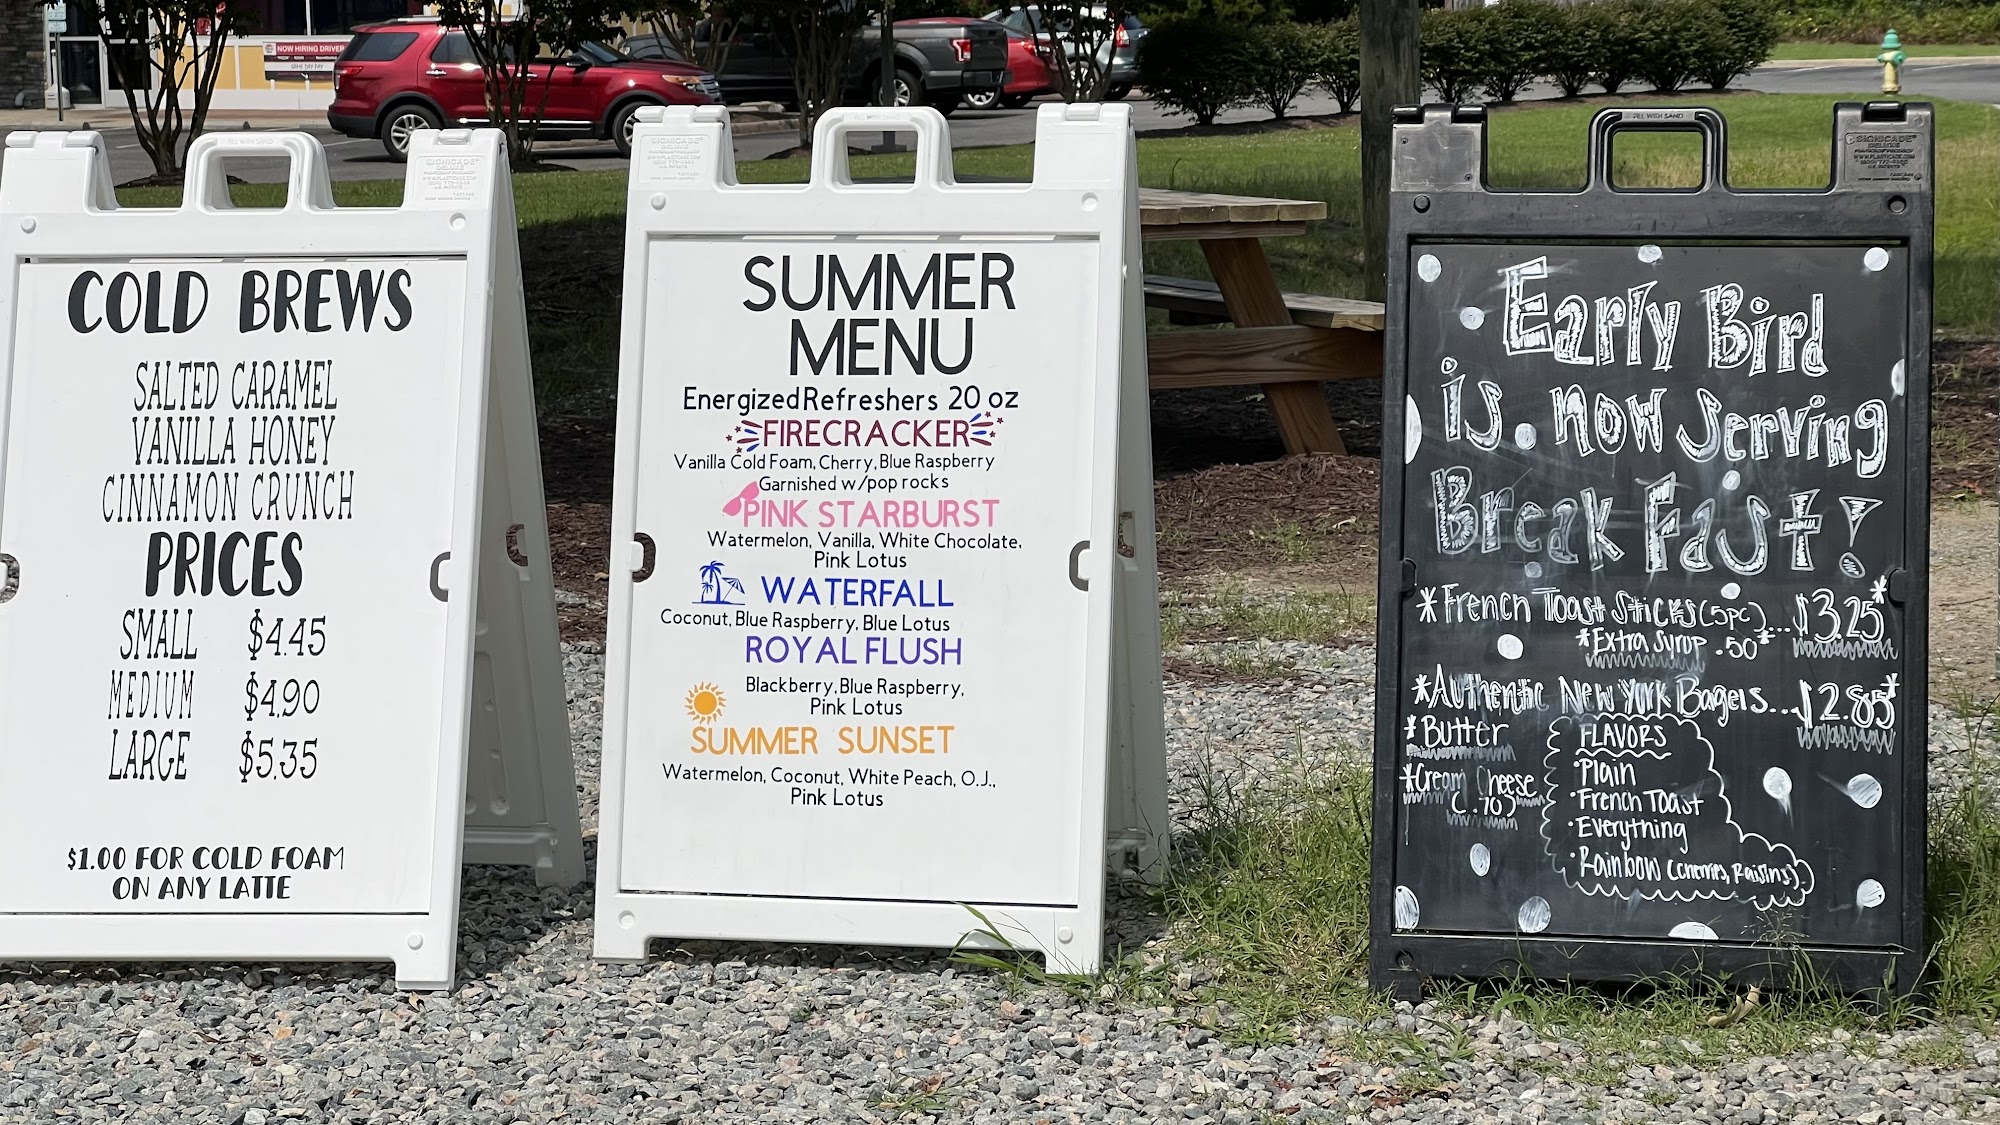 NOW HIRING DRIVER
COLD BREWS
SALTED CARAMEL
VANILLA HONEY
CINNAMON CRUNCH
PRICES
SMALL $4.45
MEDIUM $4.90
LARGE $5.35
$1.00 FOR COLD FOAM
ON ANY LATTE
SUMMER
MENU
Energized Refreshers 20 oz
FIRECRACKER
Vanilla Cold Foam, Cherry, Blue Raspberry
Garnished w/pop rocks
PINK STARBURST
Watermelon, Vanilla, White Chocolate,
Pink Lotus
WATERFALL
Coconut, Blue Raspberry, Blue Lotus
ROYAL FLUSH
Blackberry, Blue Raspberry,
Pink Lotus
SUMMER SUNSET
Watermelon, Coconut, White Peach, O.J.,
Pink Lotus
FILL WITH SAND
SIGNICADE
DELUXE
Early Bird
is now Serving
BreakFast!
*French Toast Sticks (5pc)...$3.25*
*Extra Syrup .50*
*Authentic New York Bagels...$2.85*
*Butter
*Cream Cheese
(.70)
FLAVORS
•Plain
•French Toast
•Everything
•Rainbow (cherries, raisins)